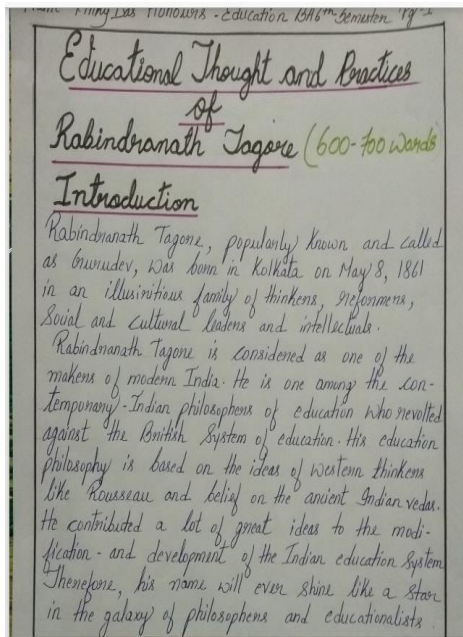 Das Honours - Education BA 6th Semester Pg-1
Educational Thought and Practices
of
Rabindranath Tagore (600-700 words
Introduction
Rabindranath Tagore, popularly known and called
as Gurudev, was born in Kolkata on May 8, 1861
in an illusinitious family of thinkers, reformers,
Social and cultural leaders and intellectuals.
Rabindranath Tagore is considered as one of the
makers of modern India. He is one among the con-
temporary - Indian philosophers of education who revolted
against the British System of education. His education
philosophy is based on the ideas of western thinkers
like Rousseau and belief on the ancient Indian vedas.
He contributed a lot of great ideas to the modi-
fication - and development of the Indian education System
Therefore, his name will ever shine like a star
in the galaxy of philosophers and educationalists.